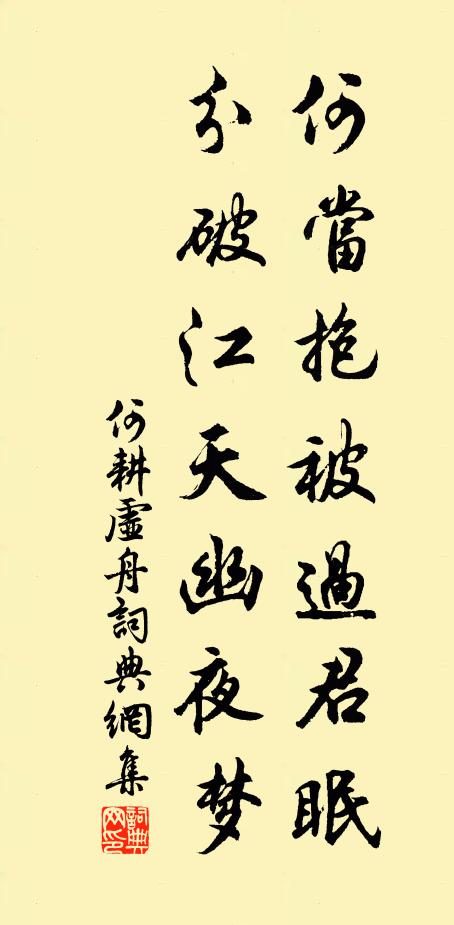 何當抱被過君眠
分破江天幽夜梦
何耕虛舟詞典網集
詞典网印